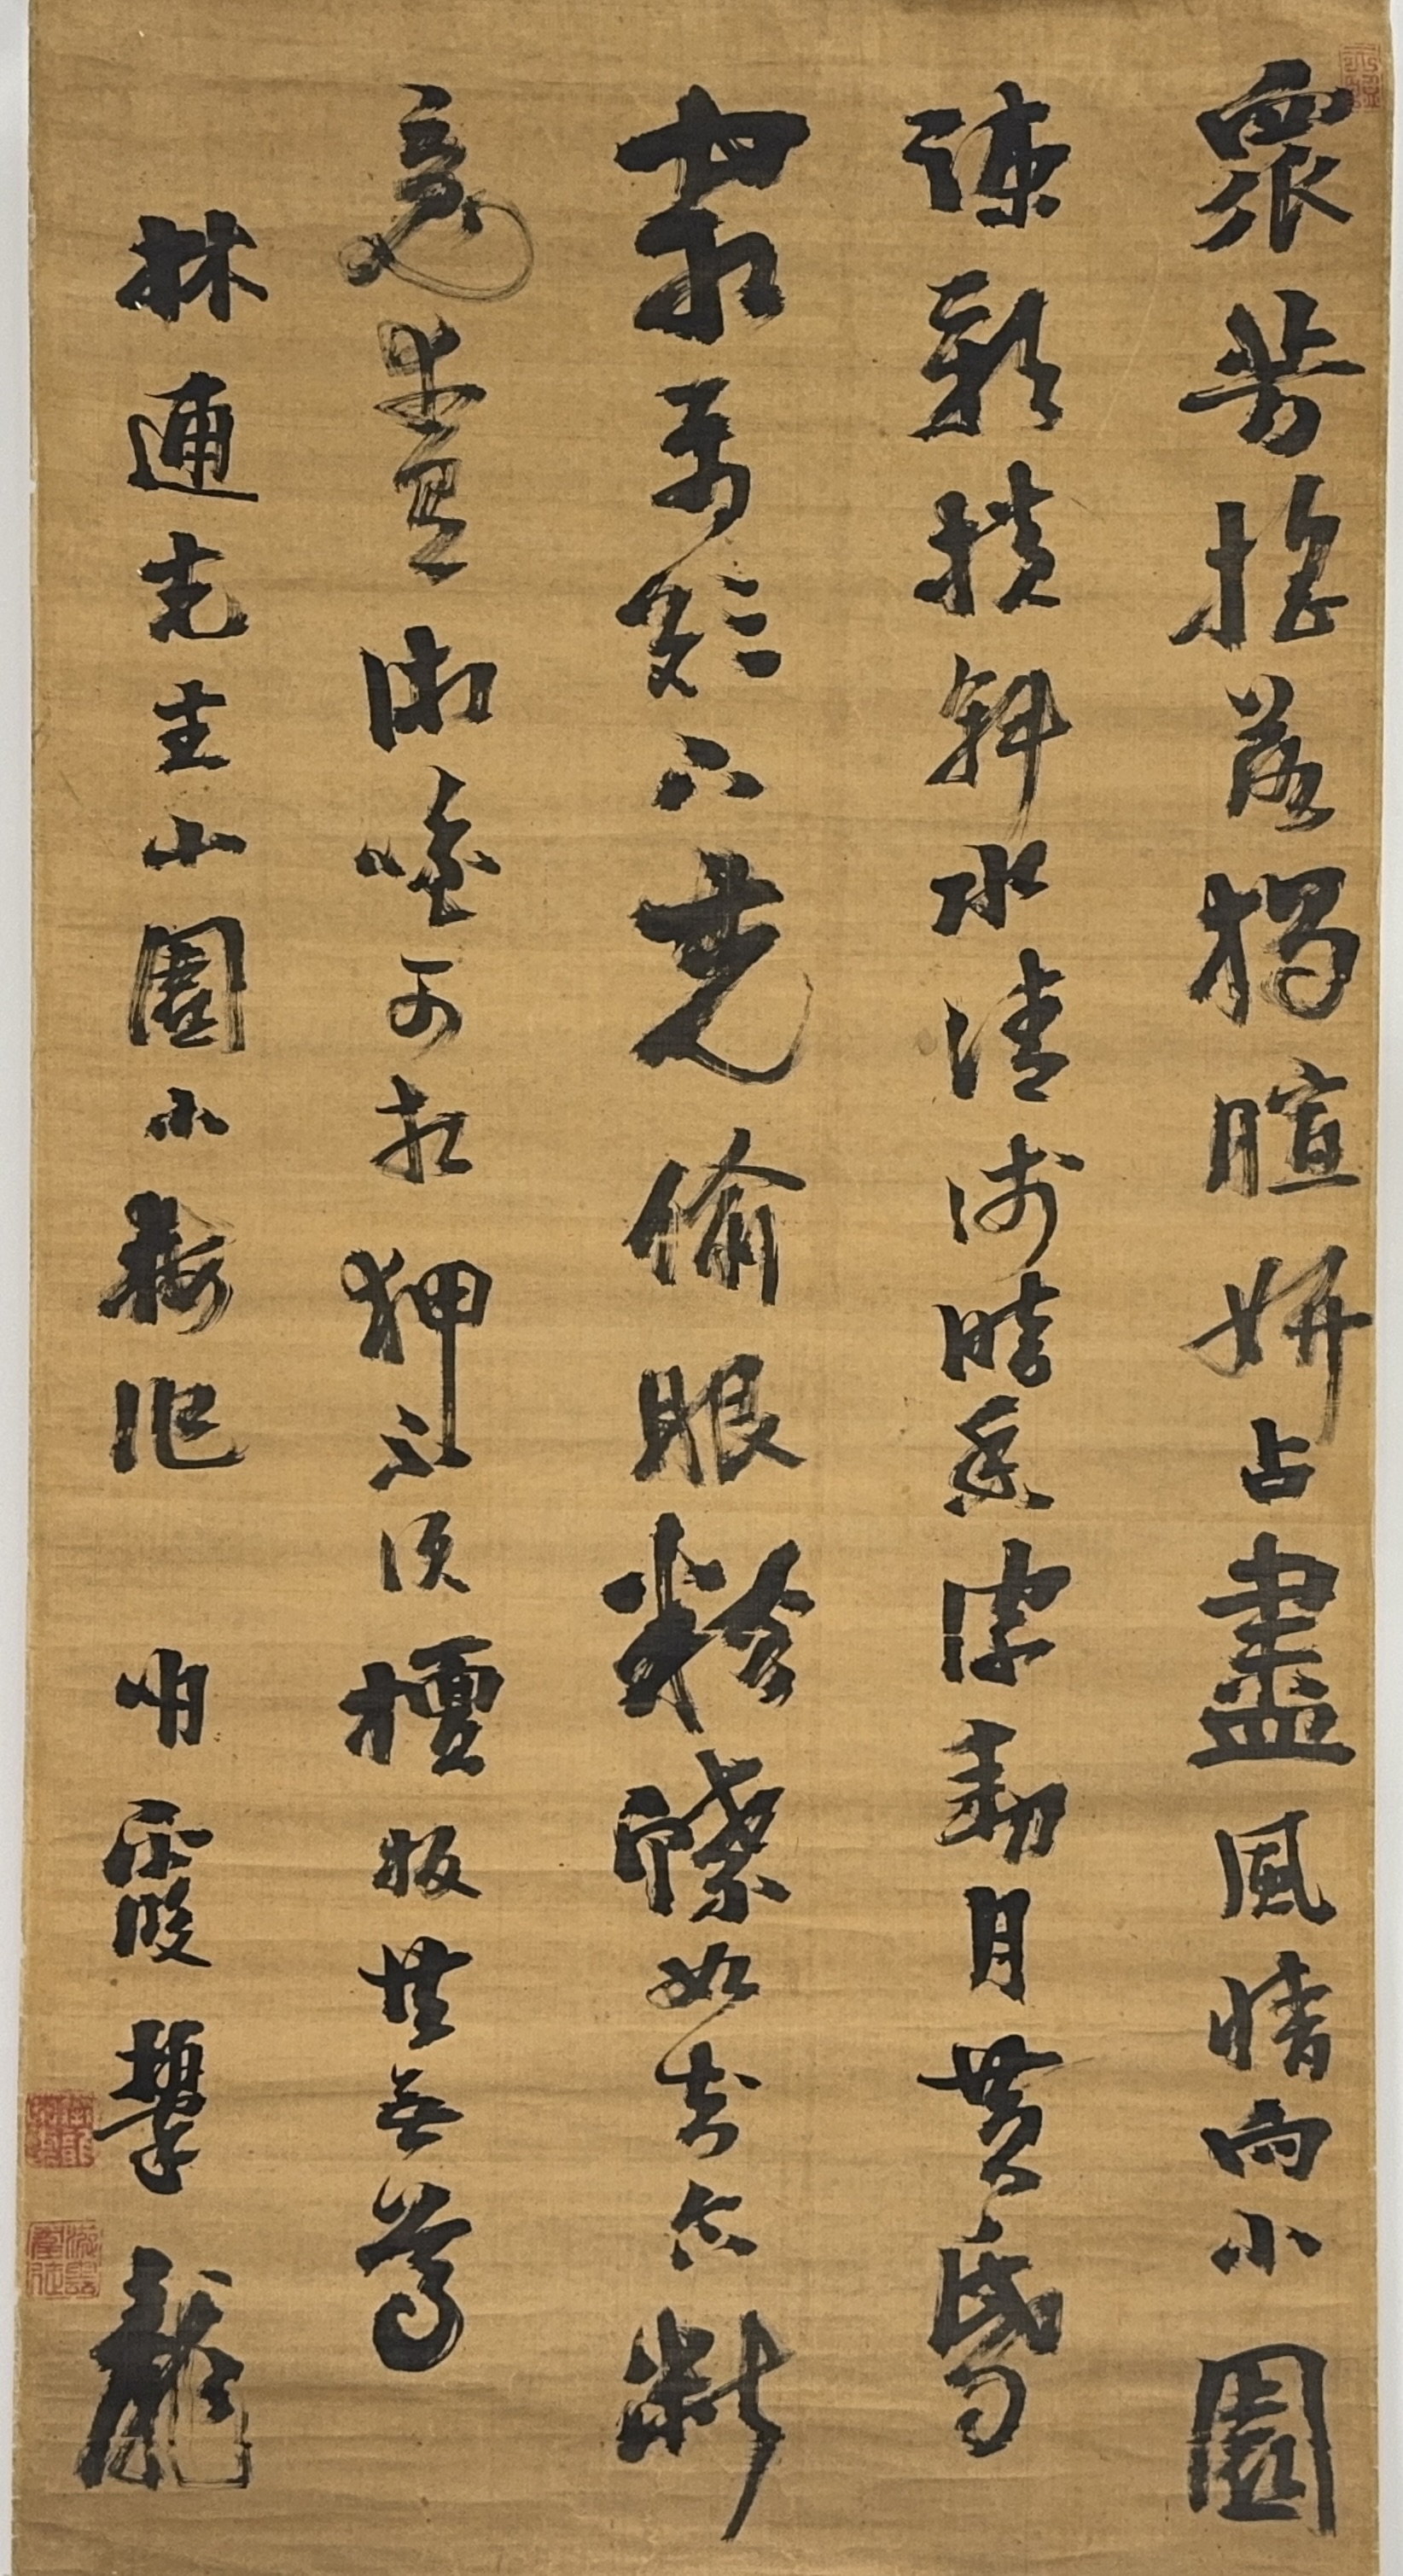 眾芳搖落獨暄妍占盡風情向小園
疎影橫斜水清淺暗香浮動月黃昏
霜禽欲下先偷眼粉蝶如知合斷
魂幸有微吟可相狎不須檀板共金尊
林逋先生山園小梅作 明霞 龍